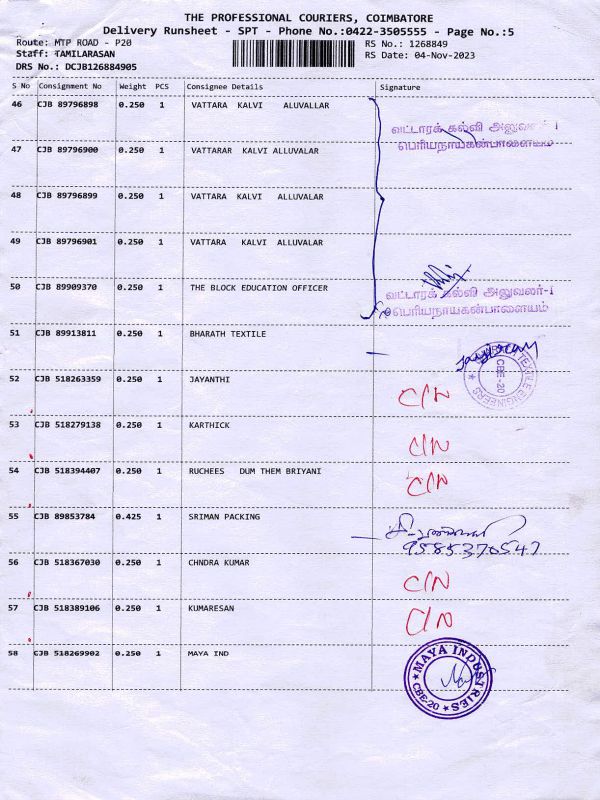 THE PROFESSIONAL COURIERS, COIMBATORE
Delivery Runsheet - SPT - Phone No.:0422-3505555 - Page No.:5
Route: MTP ROAD - P20 RS No.: 1268849
Staff: TAMILARASAN RS Date: 04-Nov-2023
DRS No.: DCJB126884905
S No Consignment No Weight PCS Consignee Details Signature
46 CJB 89796898 0.250 1 VATTARA KALVI ALUVALLAR
வட்டாரக் கல்வி அலுவலர்-1
பெரியநாயக்கன்பாளையம்
47 CJB 89796900 0.250 1 VATTARAR KALVI ALLUVALAR
48 CJB 89796899 0.250 1 VATTARA KALVI ALUVALAR
49 CJB 89796901 0.250 1 VATTARA KALVI ALUVALAR
50 CJB 89909370 0.250 1 THE BLOCK EDUCATION OFFICER
வட்டாரக் கல்வி அலுவலர்-1
பெரியநாயக்கன்பாளையம்
51 CJB 89913811 0.250 1 BHARATH TEXTILE
TEXTILE ENGINEERS
CBE-20
52 CJB 518263359 0.250 1 JAYANTHI C/N
53 CJB 518279138 0.250 1 KARTHICK C/N
54 CJB 518394407 0.250 1 RUCHEES DUM THEM BRIYANI C/N
55 CJB 89853784 0.425 1 SRIMAN PACKING
9585370547
56 CJB 518367030 0.250 1 CHNDRA KUMAR C/N
57 CJB 518389106 0.250 1 KUMARESAN C/N
58 CJB 518269902 0.250 1 MAYA IND
MAYA INDUSTRIES
CBE-20